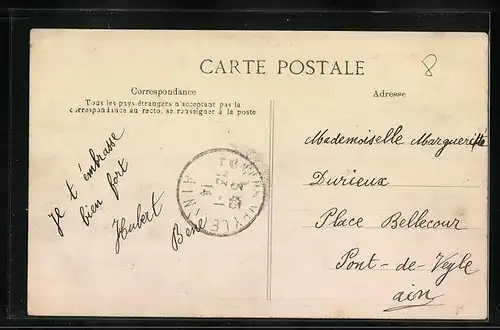 CARTE POSTALE
8
Correspondance
Tous les pays étrangers n'acceptant pas la
correspondance au recto, se renseigner à la poste
Adresse
Je t'embrasse
bien fort
Hubert
Mademoiselle Marguerite
Durieux
Place Bellecour
Pont-de-Veyle
ain